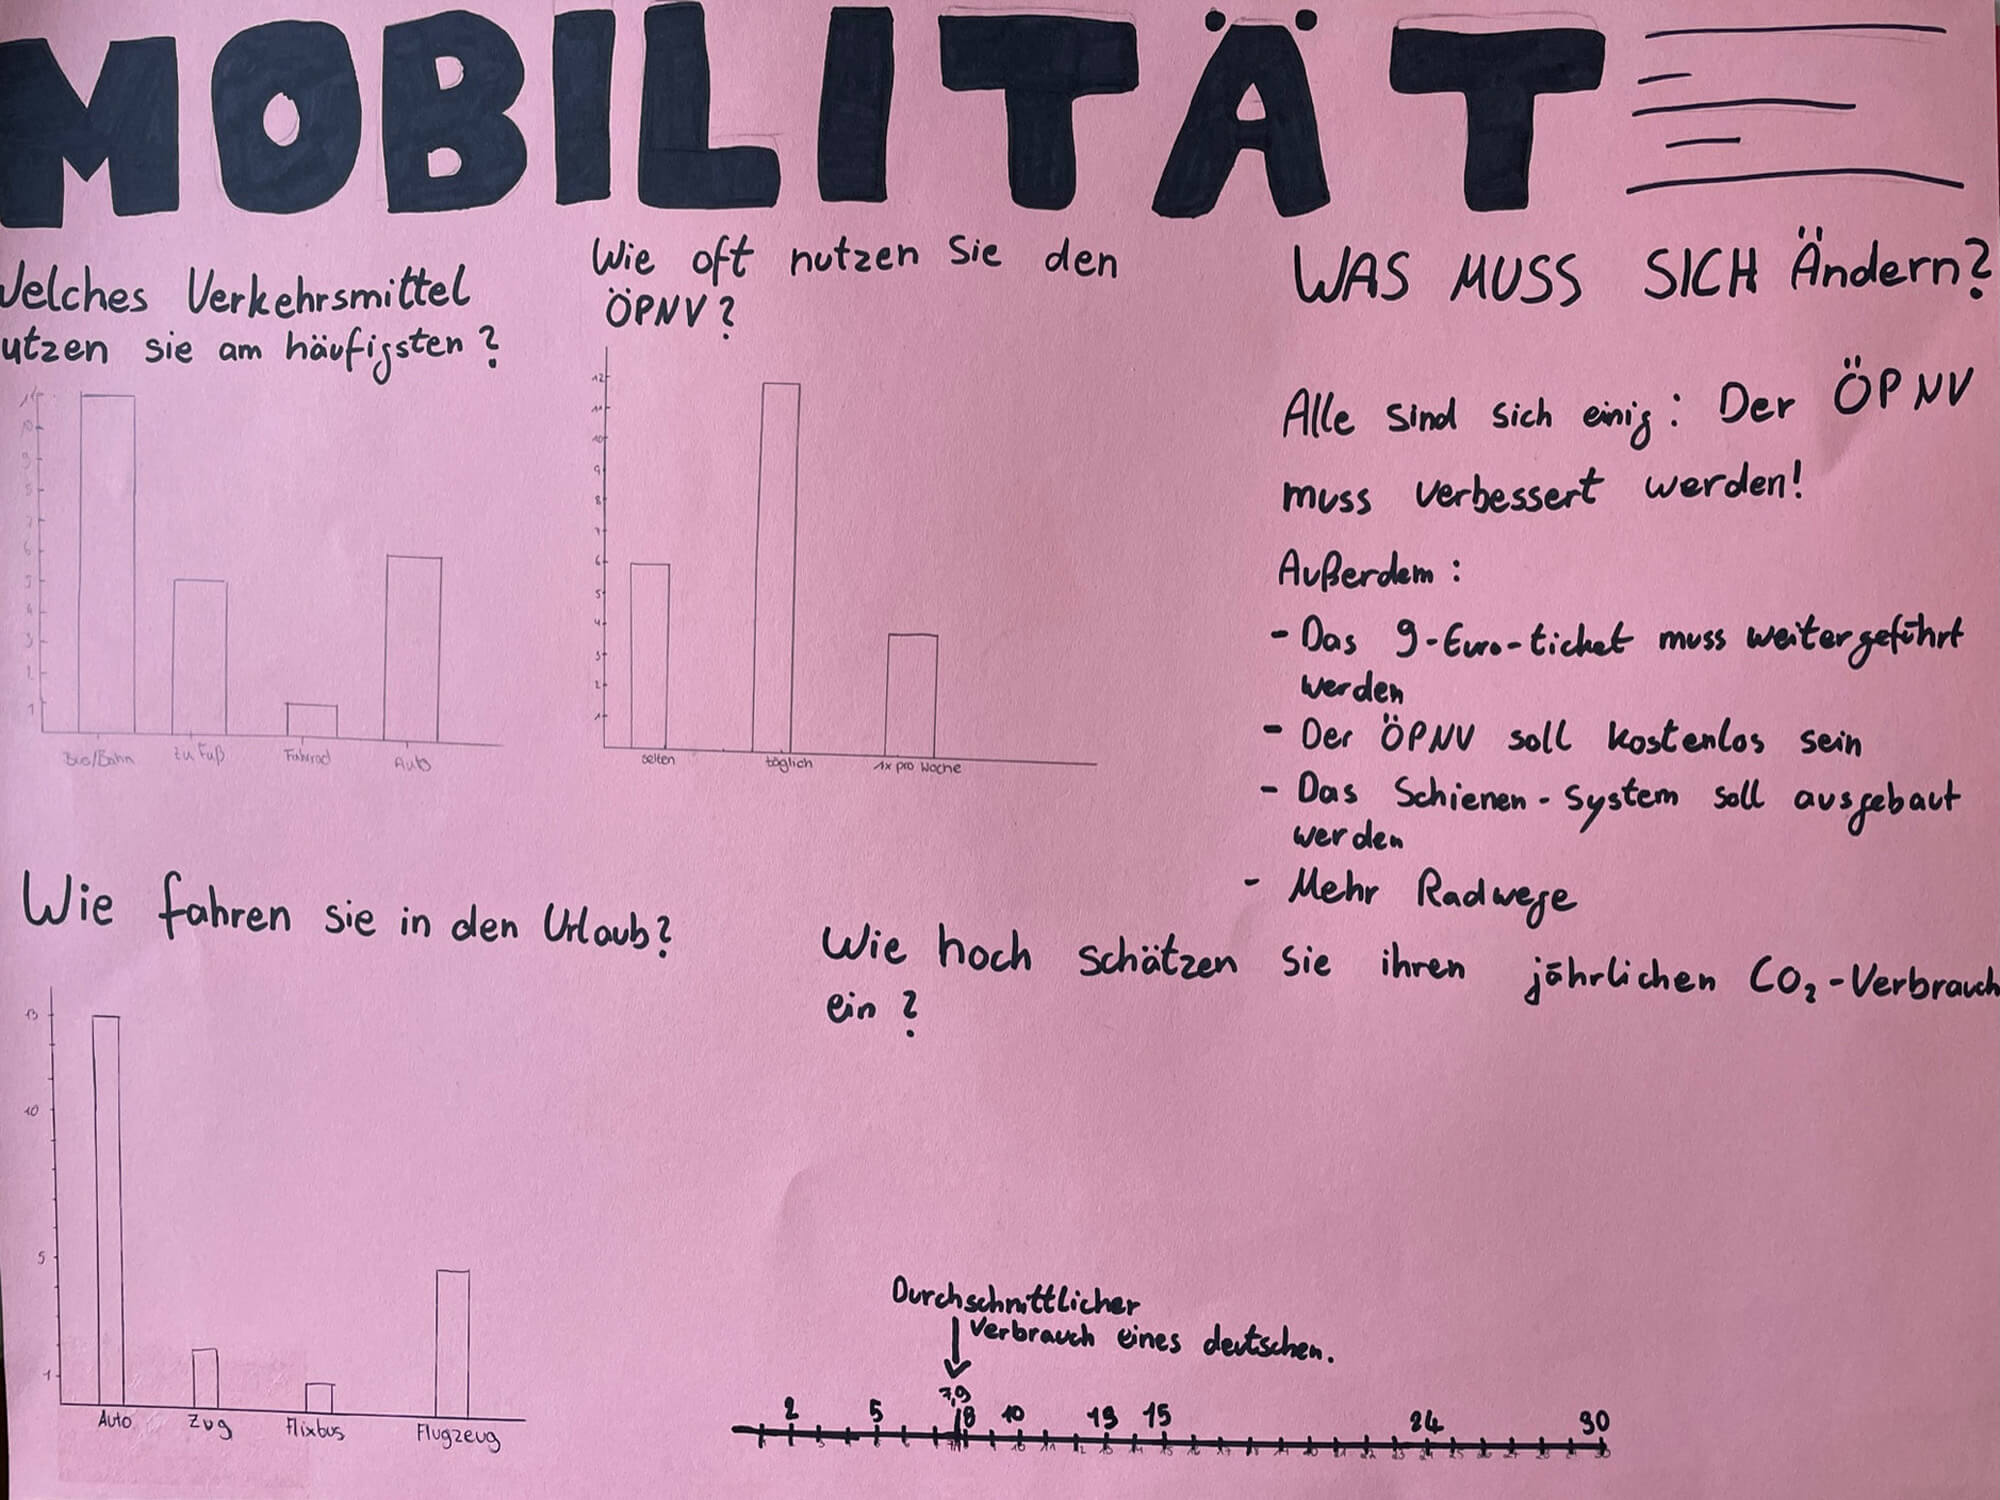 MOBILITÄT
Welches Verkehrsmittel
utzen sie am häufigsten?
11
10
9
8
7
6
5
4
3
2
1
Bus/Bahn zu Fuß Fahrrad Auto
Wie oft nutzen Sie den
ÖPNV?
12
11
10
9
8
7
6
5
4
3
2
1
selten täglich 1x pro Woche
WAS MUSS SICH Ändern?
Alle sind sich einig: Der ÖPNV
muss verbessert werden!
Außerdem:
- Das 9-Euro-ticket muss weitergeführt
werden
- Der ÖPNV soll kostenlos sein
- Das Schienen-System soll ausgebaut
werden
- Mehr Radwege
Wie fahren sie in den Urlaub?
13
10
5
1
Auto Zug Flixbus Flugzeug
Wie hoch schätzen sie ihren jährlichen CO₂-Verbrauch
ein?
Durchschnittlicher
Verbrauch eines deutschen.
7,9
2 5 8 10 13 15 24 30